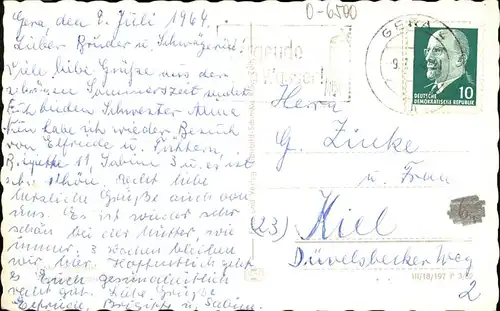 Gera, den 8. Juli 1964.
Lieber Bruder u. Schwägerin!
Viele liebe Grüße aus der
schönen Sommerszeit sendet
Euch beiden Schwester Anna
habe ich wieder Besuch
von Elfriede u.
Brigitte 11, Sabine 3 u. es ist
sehr schön, recht liebe
herzliche Grüße auch von
uns. Es ist wieder sehr
schön bei der Mutter, wie
immer. 3 Wochen bleiben
wir hier. Hoffentlich geht
es Euch gesundheitlich
recht gut. Liebe Grüße
Elfriede, Brigitte u. Sabine.
O-6500
GERA
DEUTSCHE
DEMOKRATISCHE REPUBLIK
10
Herrn
G. Zinke
u. Frau
(23) Kiel
Düvelsbecker Weg
2
III/18/197 P 3/62